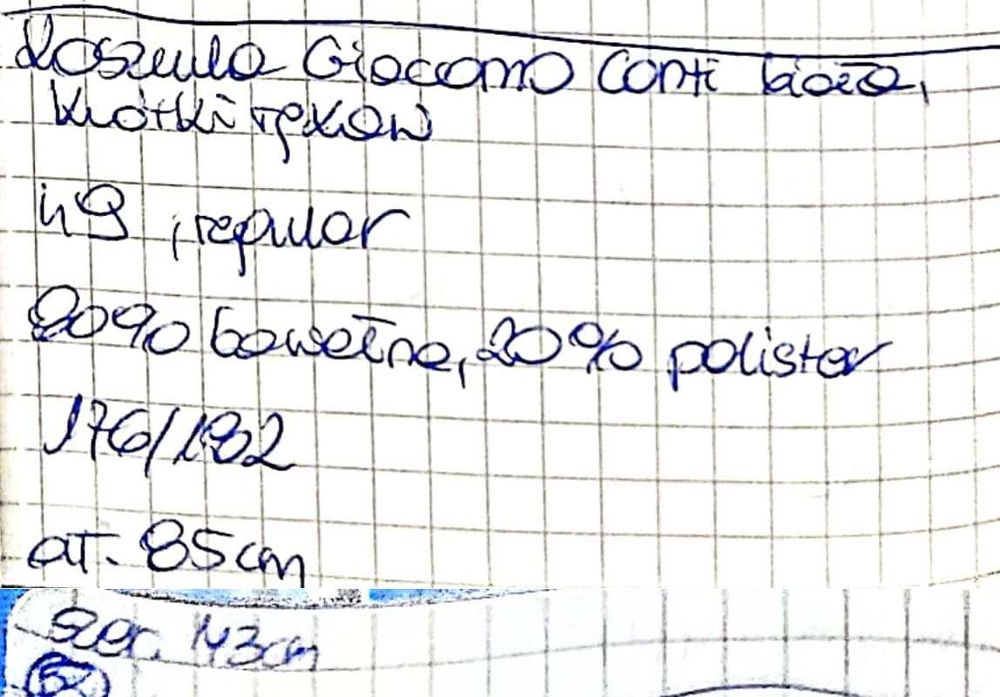 Koszula Giacomo Conti biała,
krótki rękaw
49, regular
80% bawełna, 20% polister
176/182
dł. 85cm
szer. 143cm